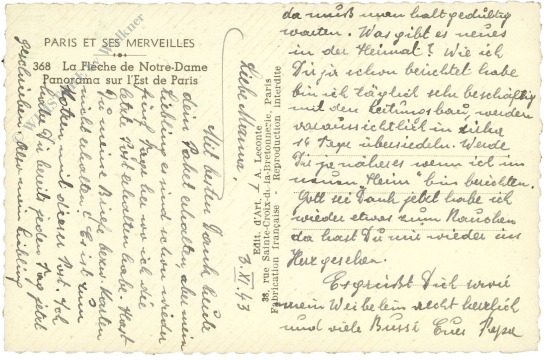 PARIS ET SES MERVEILLES
368 La Flèche de Notre-Dame
Panorama sur l'Est de Paris
Edit. d'Art. A. Leconte
38, rue Sainte-Croix-de-la-Bretonnerie, Paris
Fabrication française Reproduction interdite
3 XI 43
Liebe
Mit besten Dank heute
dein Paket erhalten, aber mein
Liebling es sind schon wieder
fünf Tage her wo ich die
letzte Post erhalten habe. Hast
Du meine Briefe bezw. Karten
nicht erhalten? Es ist zum
mit dieser Post. Ich
habe Dir bereits jeden Tag jetzt
geschrieben. Aber mein Liebling
da muß man halt geduldig
warten. Was gibt es neues
in der Heimat? Wie ich
Dir ja schon berichtet habe
bin ich täglich sehr beschäftig
mit den Leitungsbau, werden
voraussichtlich in
14 Tage übersiedeln. Werde
Dir genäheres wenn ich im
neuen „Heim" bin berichten.
Gott sei Dank jetzt habe ich
wieder etwas zum Rauchen
da hast Du mir wieder ins
Herz gesehen.
Es grüßt Dich sowie
mein Weibelein recht herzlich
und viele Bussi Euer